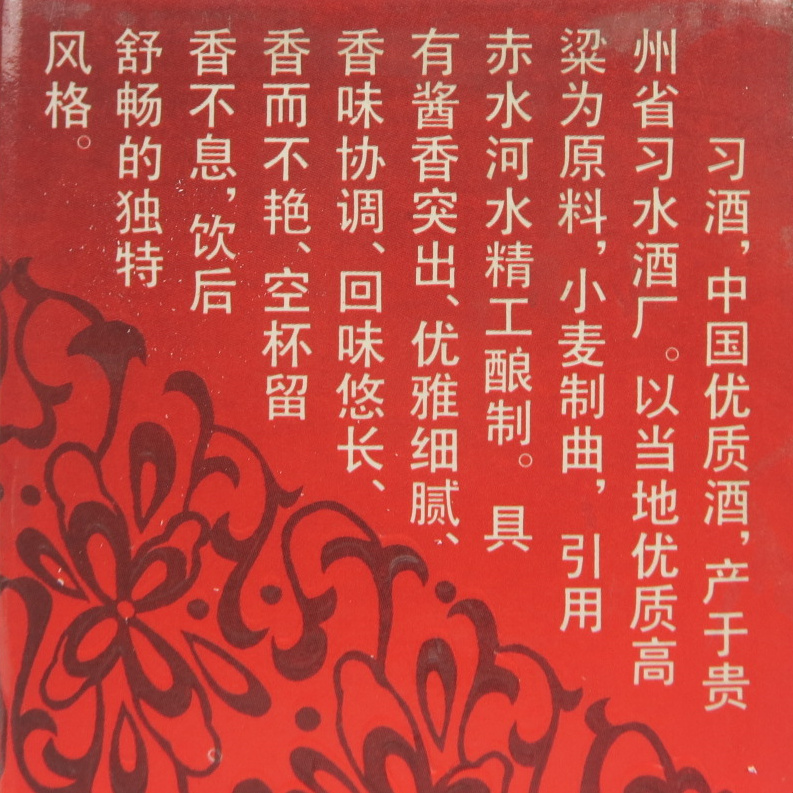 习酒，中国优质酒，产于贵
州省习水酒厂。以当地优质高
粱为原料，小麦制曲，引用
赤水河水精工酿制。具
有酱香突出、优雅细腻、
香味协调、回味悠长、
香而不艳、空杯留
香不息，饮后
舒畅的独特
风格。